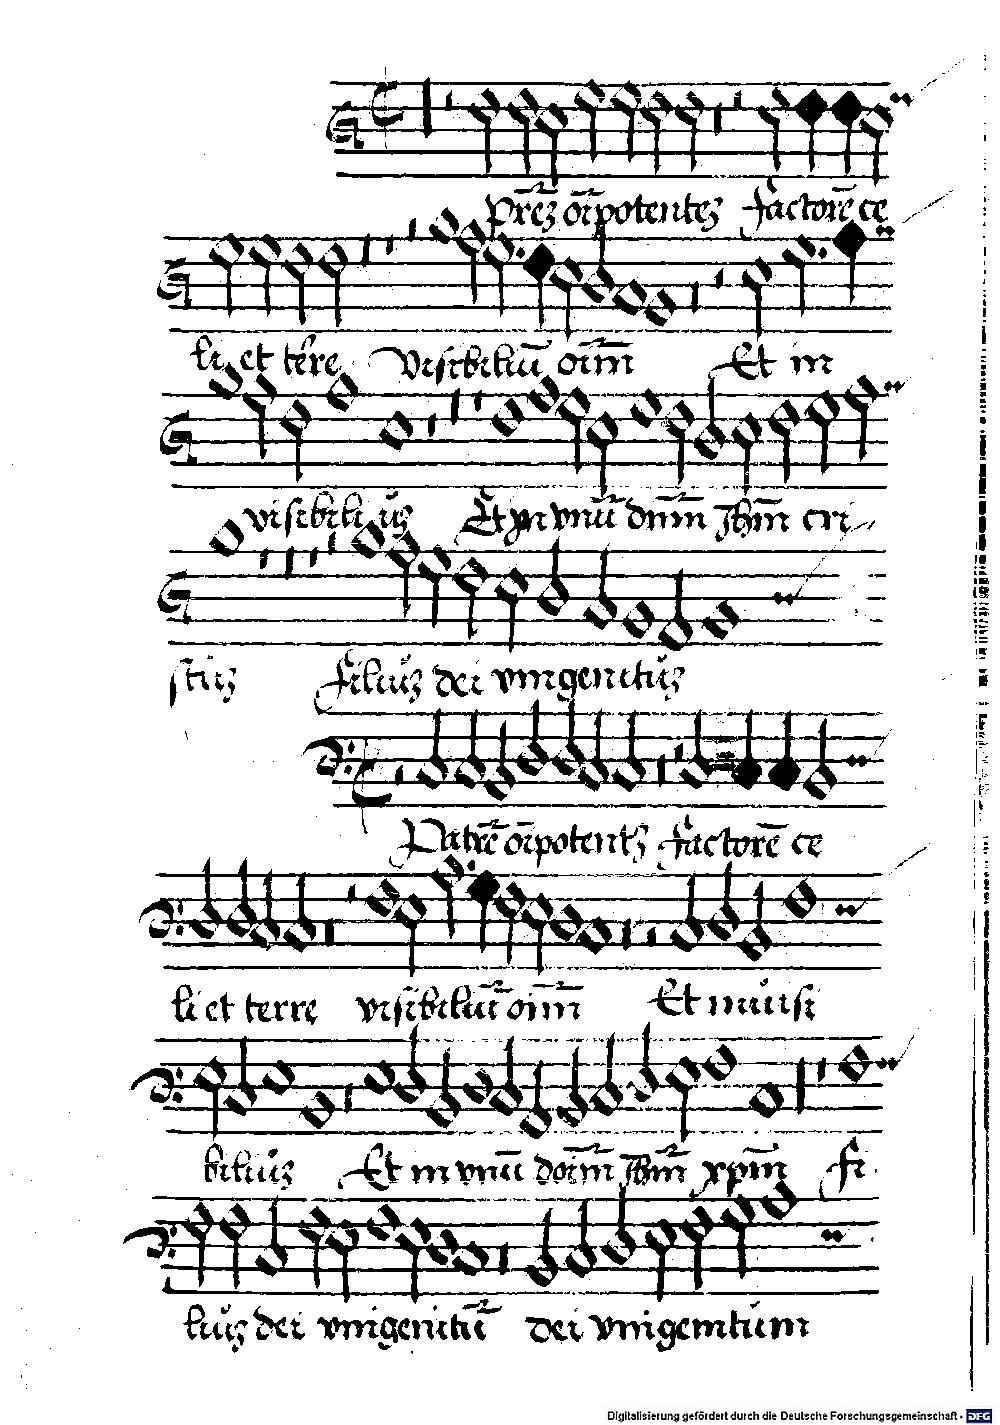 Pr̄ez oīpotentez factorē ce
li et terre visibiliū oīm̄ Et in
visibiliuz Et in vnū dnm̄ Jhm̄ cri
stuz filiuz dei vnigenituz
Patrē oīpotentz factorē ce
li et terre visibiliū oīm̄ Et inuisi
biliuz Et in vnū doīm̄ Jhm̄ xp̄m fi
liuz dei vnigenitū dei vnigenitum
Digitalisierung gefördert durch die Deutsche Forschungsgemeinschaft - DFG